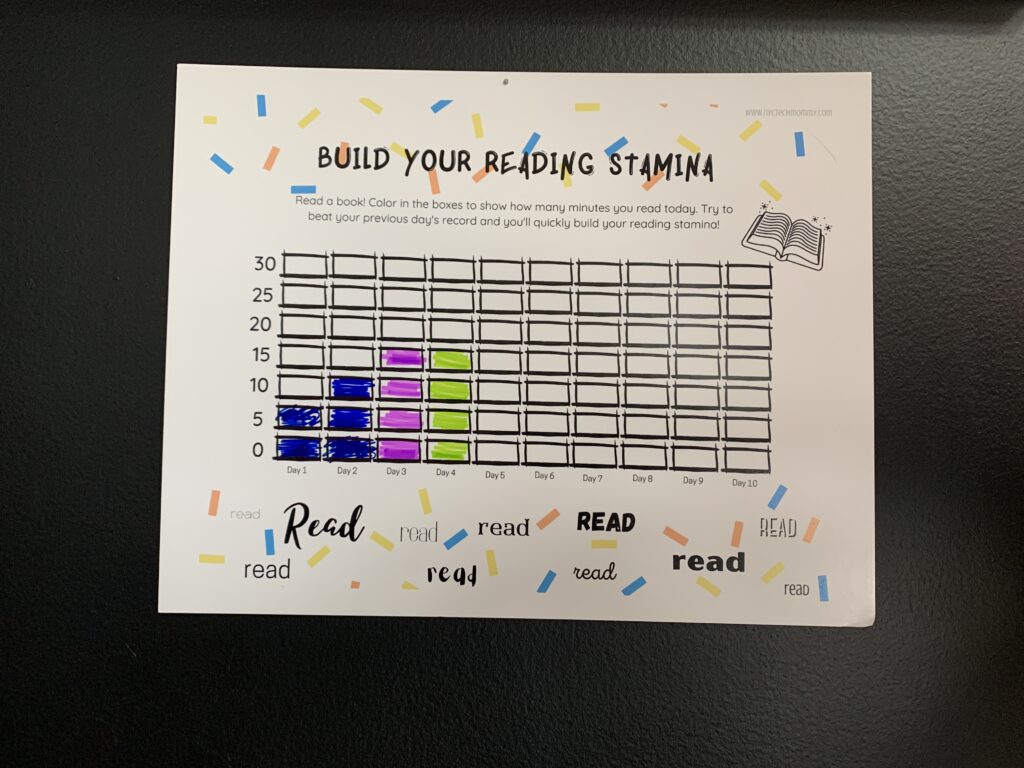 www.nyctechmommy.com
BUILD YOUR READING STAMINA
Read a book! Color in the boxes to show how many minutes you read today. Try to
beat your previous day's record and you'll quickly build your reading stamina!
30
25
20
15
10
5
0
Day 1 Day 2 Day 3 Day 4 Day 5 Day 6 Day 7 Day 8 Day 9 Day 10
read Read read read READ READ
read read read read read